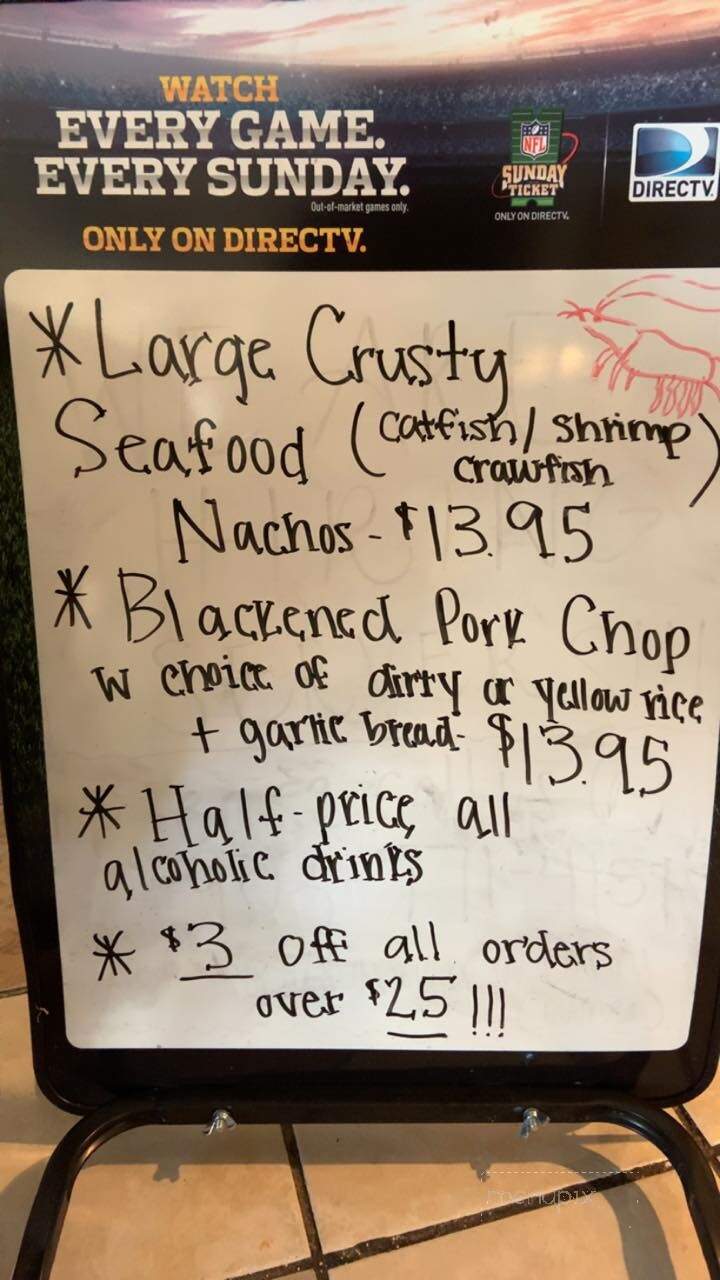 WATCH
EVERY GAME.
EVERY SUNDAY.
Out-of-market games only.
ONLY ON DIRECTV.
NFL
SUNDAY
TICKET
ONLY ON DIRECTV.
DIRECTV
* Large Crusty
Seafood (catfish/shrimp
crawfish)
Nachos - $13.95
* Blackened Pork Chop
w choice of dirty or yellow rice
+ garlic bread - $13.95
* Half-price all
alcoholic drinks
* $3 off all orders
over $25 !!!
menupix